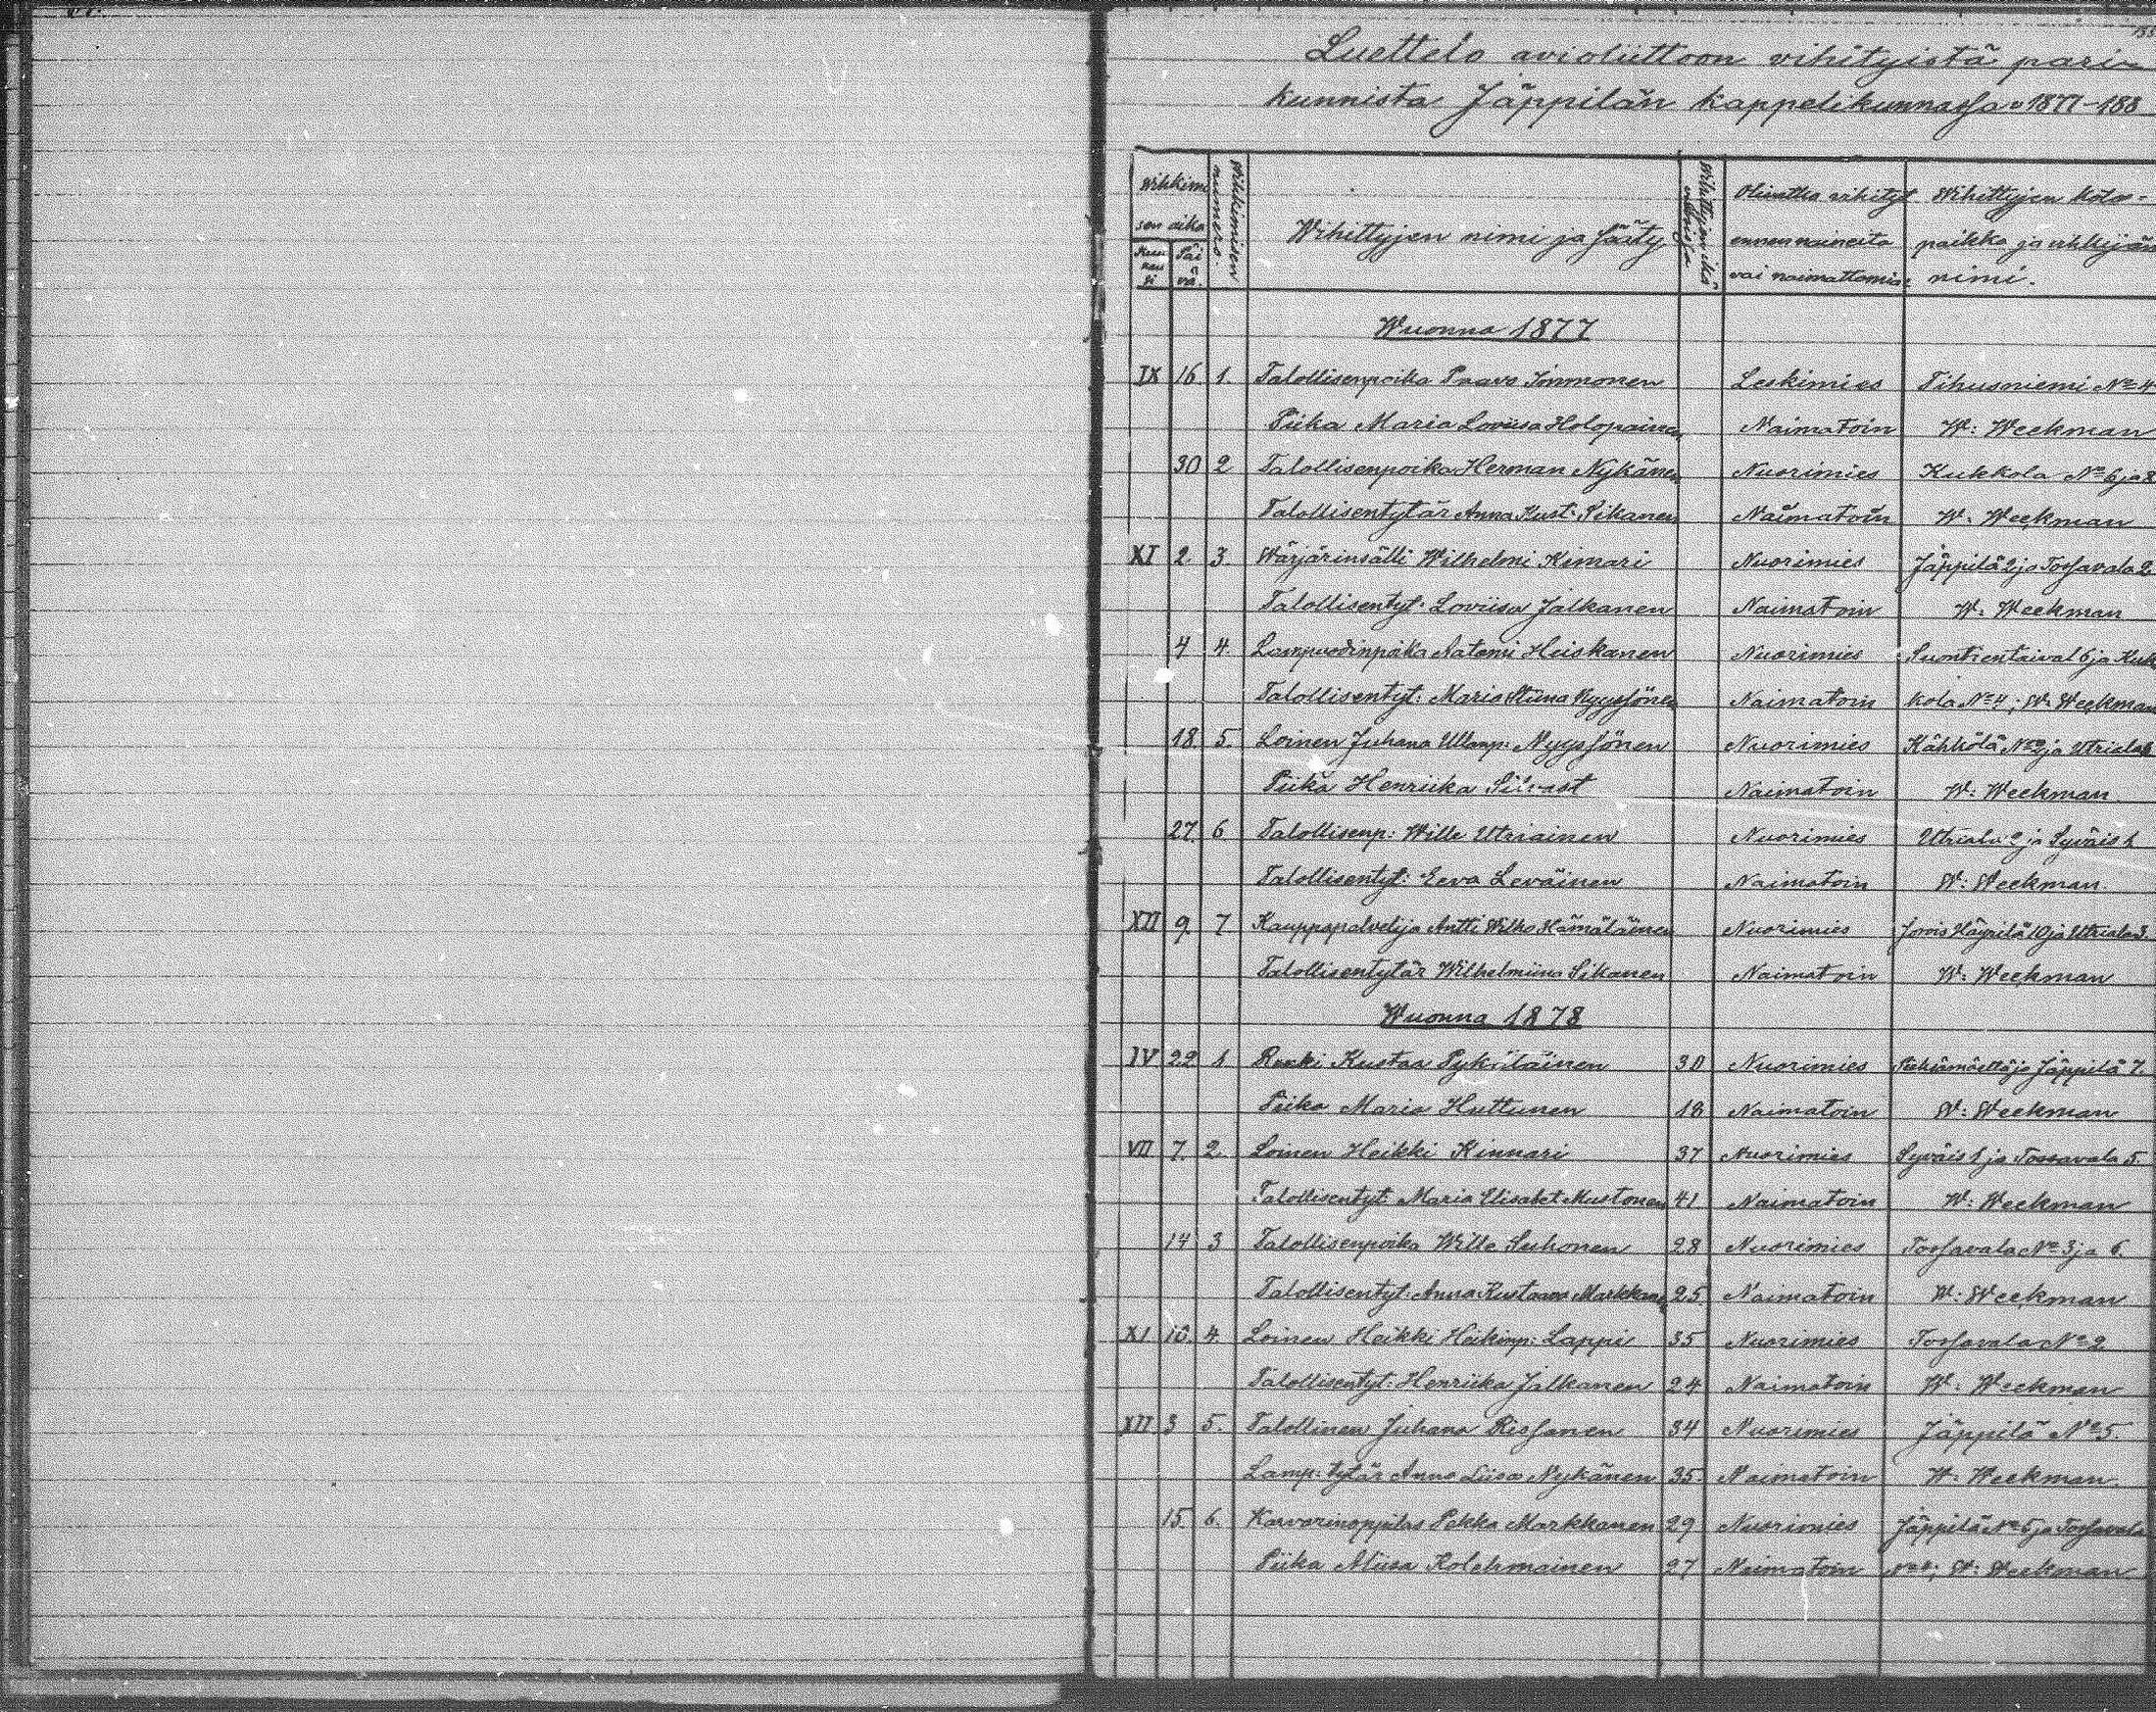 Luettelo avioliittoon vihityistä pari-
kunnista Jäppilän kappelikunnassa v 1877-188
Wihkimi
sen aika
Kuu
kau
si
Päi
vä.
Wihkimisen
numero.
Wihittyjen nimi ja sääty
Wihittyjen ikä
vuosissa
Olivatko vihityt
ennen naineita
vai naimattomia
Wihittyjen koto-
paikka ja vihkijän
nimi.
Wuonna 1877
IX 16 1. Talollisenpoika Paavo Immonen Leskimies Tihusniemi No 4
Piika Maria Loviisa Holopainen Naimatoin W: Weekman
30 2 Talollisenpoika Herman Nykänen Nuorimies Kukkola No 6 ja 8
Talollisentytär Anna Kust: Sikanen Naimatoin W: Weekman
XI 2. 3 Wärjärinsälli Wilhelmi Kimari Nuorimies Jäppilä 2 ja Tossavala 2
Talollisentyt: Loviisa Jalkanen Naimatoin W: Weekman
4 4. Lampuodinpoika Natami Heiskanen Nuorimies Suontientaival 6 ja Kuk
Talollisentyt: Maria Stiina Nyyssönen Naimatoin kola No 4; W: Weekman
18 5. Loinen Juhana Ullanp: Nyyssönen Nuorimies Kähkölä No 2 ja Utriala
Piika Henriika Silvast Naimatoin W: Weekman.
27. 6. Talollisenp: Wille Utriainen Nuorimies Utriala 2 ja Syväis 1
Talollisentyt: Eeva Leväinen Naimatoin W: Weekman.
XII 9. 7 Kauppapalvelija Antti Wilho Hämäläinen Nuorimies Jorois Häyrilä 10 ja Utriala 3.
Talollisentytär Wilhelmiina Sikanen Naimatoin W: Weekman
Wuonna 1878
IV 22 1 Renki Kustaa Pyköläinen 30 Nuorimies ja Jäppilä 7.
Piika Maria Huttunen 18 Naimatoin W: Weekman
VII 7. 2. Loinen Heikki Kinnari 37 Nuorimies Syväis 1 ja Tossavala 5.
Talollisentyt: Maria Elisabet Mustonen 41. Naimatoin W: Weekman
14 3 Talollisenpoika Wille Suhonen 28 Nuorimies Tossavala No 3 ja 6.
Talollisentyt: Anna Kustaava Markkanen 25. Naimatoin W: Weekman
XI 10. 4. Loinen Heikki Heikinp: Lappi 35 Nuorimies Tossavala No 2
Talollisentyt: Henriika Jalkanen 24 Naimatoin W: Weekman
XII 3 5. Talollinen Juhana Rissanen 34 Nuorimies Jäppilä No 5.
Lamp: tytär Anna Liisa Nykänen 35. Naimatoin W: Weekman.
15. 6. Karvarinoppilas Pekka Markkanen 29 Nuorimies Jäppilä No 5 ja Tossavala
Piika Miina Kolehmainen 27 Naimatoin W: Weekman